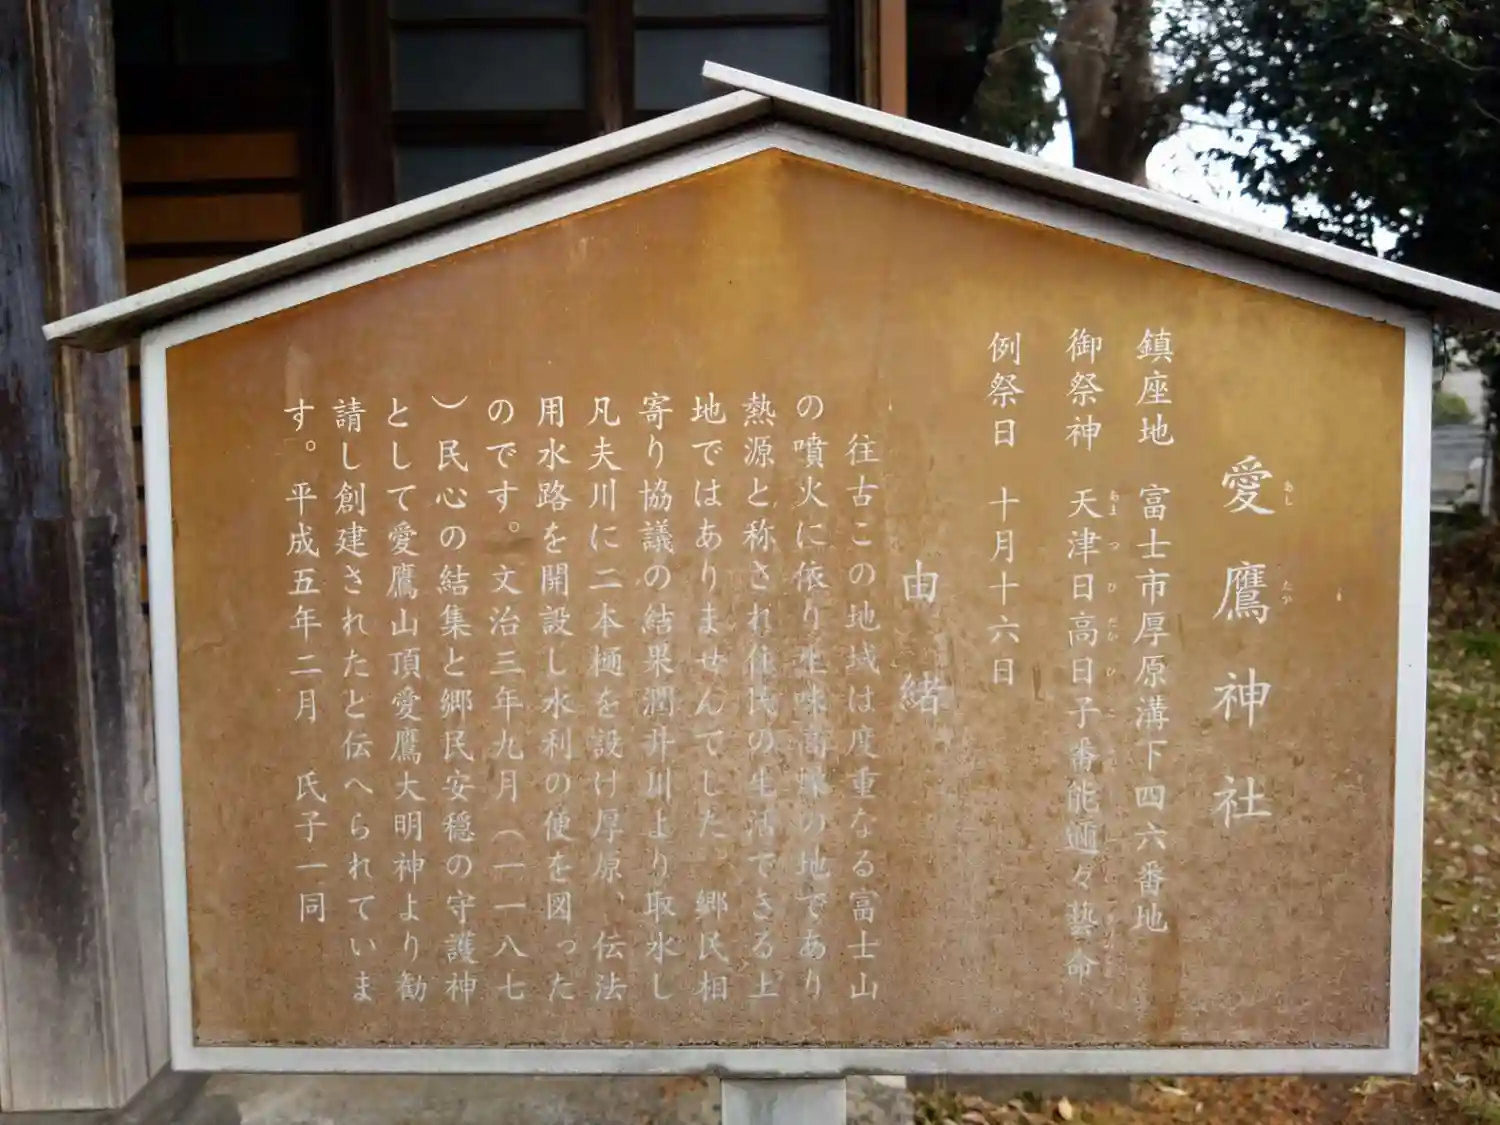 愛鷹神社
あし たか
鎮座地 富士市厚原溝下四六番地
御祭神 天津日高日子番能邇々藝命
あま つ ひ だか ひ こ
例祭日 十月十六日
由緒
往古この地域は度重なる富士山
の噴火に依り生味高燥の地であり
熱源と称され住民の生活できる土
地ではありませんでした。郷民相
寄り協議の結果潤井川より取水し
凡夫川に二本樋を設け厚原、伝法
用水路を開設し水利の便を図った
のです。文治三年九月（一一八七
）民心の結集と郷民安穏の守護神
として愛鷹山頂愛鷹大明神より勧
請し創建されたと伝へられていま
す。平成五年二月 氏子一同